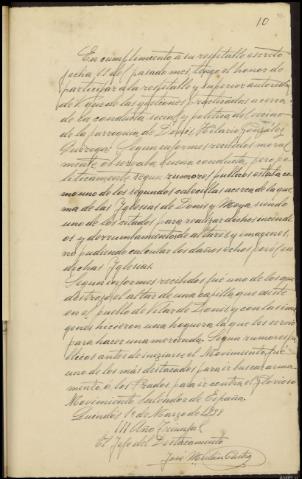 10
En cumplimiento a su respetable escrito
fecha 11 del pasado mes, tengo el honor de
participar a la respetable y superior autoridad
de V. que de las gestiones practicadas acerca
de la conducta social y politica del vecino
de la parroquia de Hilario Gonzalez
Segun informes recibidos moral
mente observaba buena conducta, pero po
liticamente segun rumores publicos estaba co
mo uno de los segundos cabecillas acerca de la que
ma de las Iglesias de y Moya siendo
uno de los citados para realizar dichos incendi
os y derrumbamiento de altares y imagenes,
no pudiendo calcular los daños echos por el en
dichas Iglesias.
Segun informes recibidos fué uno de los que
destrozó el altar de una capilla que existe
en el pueblo de de y con las ima
genes hicieron una hoguera la que les servio
para hacer una merienda. Segun rumores pu
blicos antes de iniciarse el Movimiento, fué
uno de los mas destacados para buscar arma
mento a los Prados para ir contra el Glorioso
Movimiento Salvador de España.
1º de Marzo de 1938
III Año Triunfal
El Jefe del Destacamento
José